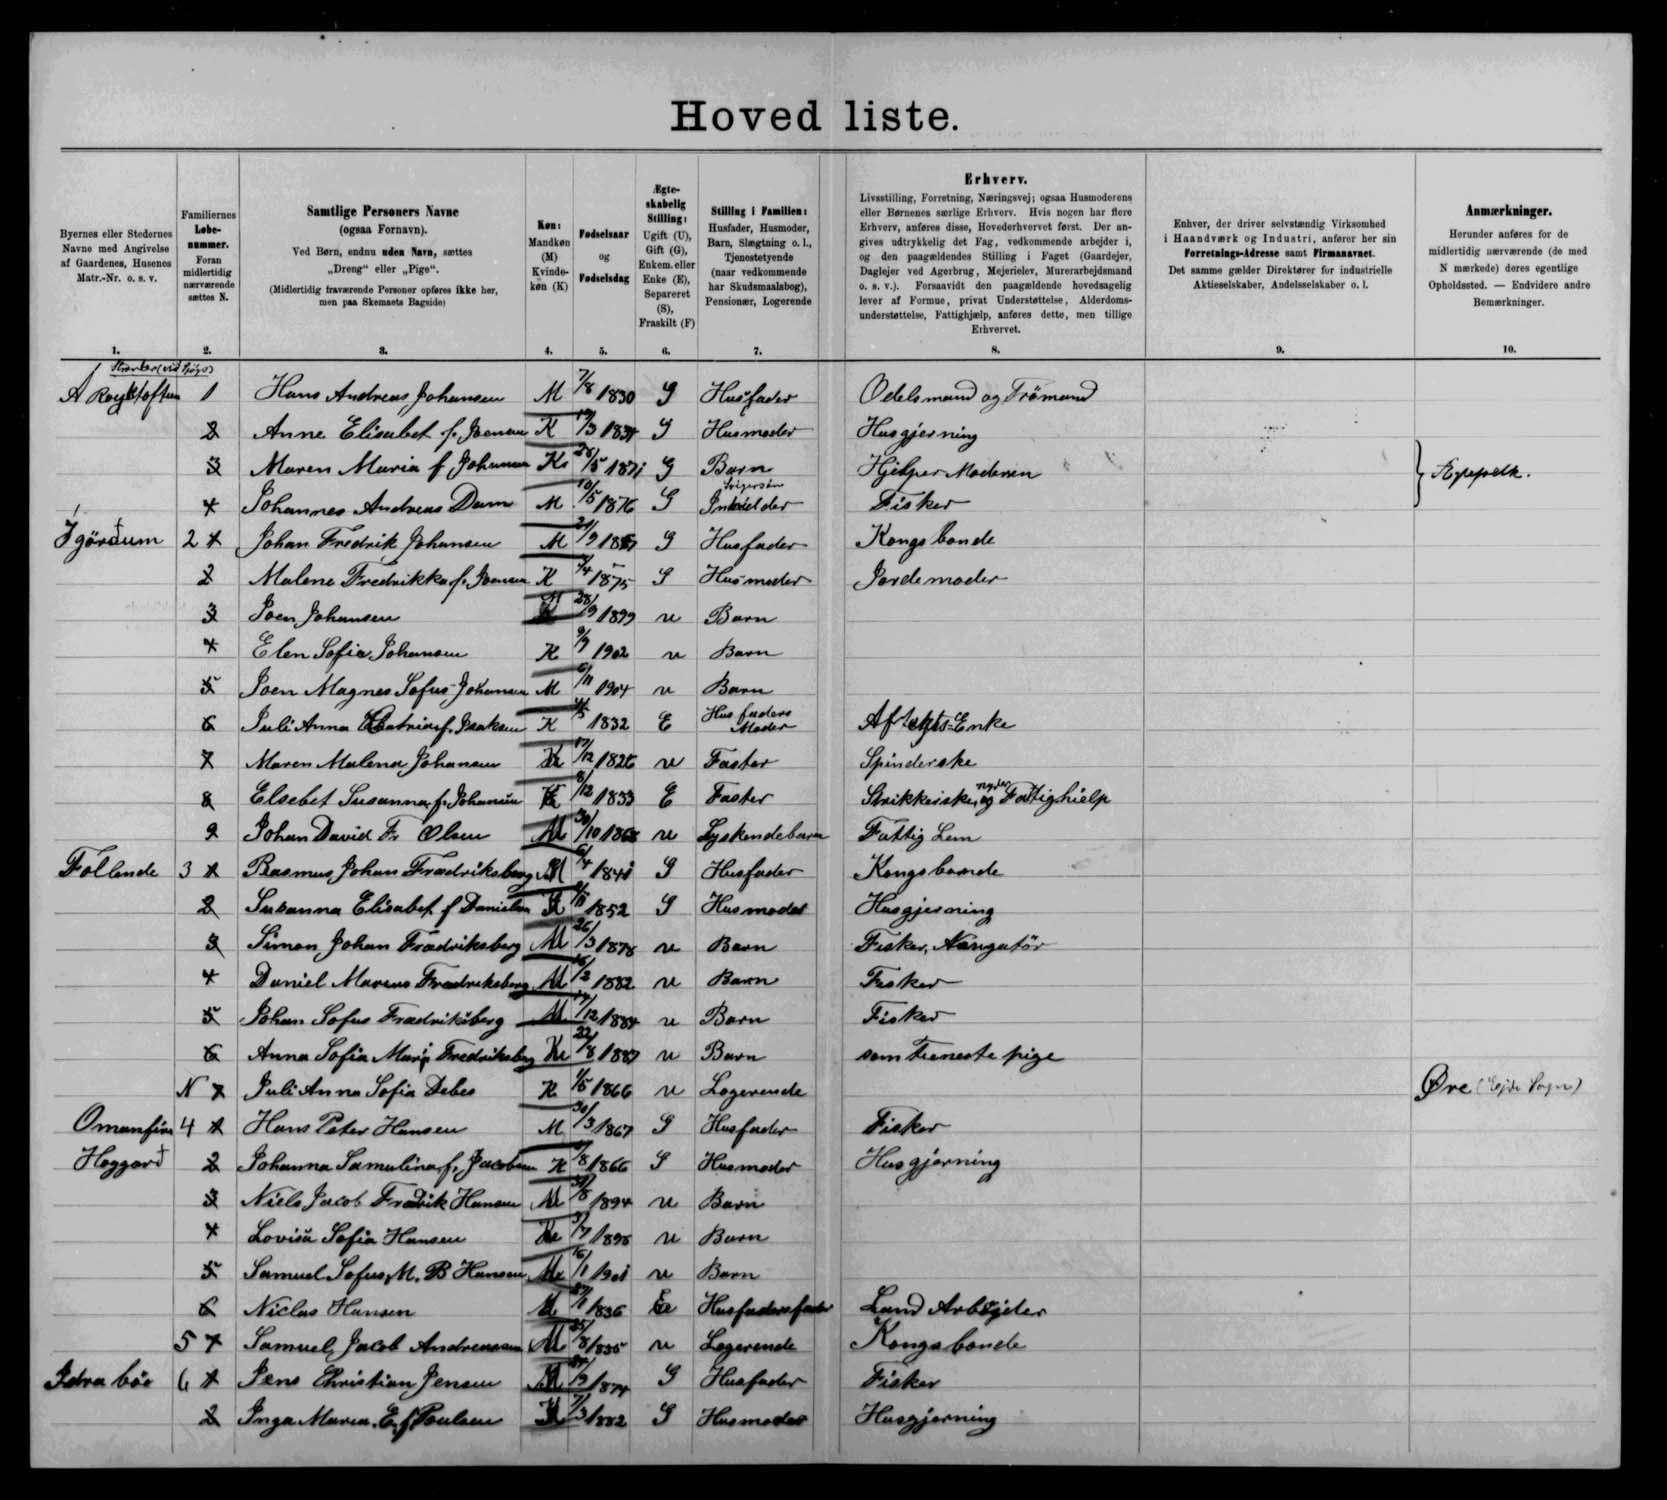 Hoved liste.
Byernes eller Stedernes Navne med Angivelse af Gaardenes, Husenes Matr.-Nr. o. s. v.
Familiernes Løbe-nummer. Foran midlertidig nærværende sættes N.
Samtlige Personers Navne
(ogsaa Fornavn).
Ved Børn, endnu uden Navn, sættes „Dreng“ eller „Pige“.
(Midlertidig fraværende Personer opføres ikke her, men paa Skemaets Bagside)
Køn: Mandkøn (M) Kvinde-køn (K)
Fødselsaar og Fødselsdag
Ægte-skabelig Stilling: Ugift (U), Gift (G), Enkem. eller Enke (E), Separeret (S), Fraskilt (F)
Stilling i Familien: Husfader, Husmoder, Barn, Slægtning o. l., Tjenestetyende (naar vedkommende har Skudsmaalsbog), Pensionær, Logerende
Erhverv.
Livsstilling, Forretning, Næringsvej; ogsaa Husmoderens eller Børnenes særlige Erhverv. Hvis nogen har flere Erhverv, anføres disse, Hovederhvervet først. Der angives udtrykkelig det Fag, vedkommende arbejder i, og den paagældendes Stilling i Faget (Gaardejer, Daglejer ved Agerbrug, Mejerielev, Murerarbejdsmand o. s. v.). Forsaavidt den paagældende hovedsagelig lever af Formue, privat Understøttelse, Alderdomsunderstøttelse, Fattighjælp, anføres dette, men tillige Erhvervet.
Enhver, der driver selvstændig Virksomhed i Haandværk og Industri, anfører her sin Forretnings-Adresse samt Firmanavnet.
Det samme gælder Direktører for industrielle Aktieselskaber, Andelsselskaber o. l.
Anmærkninger.
Herunder anføres for de midlertidig nærværende (de med N mærkede) deres egentlige Opholdssted. — Endvidere andre Bemærkninger.
1. 2. 3. 4. 5. 6. 7. 8. 9. 10.
1 Hans Andreas Johansen M 7/8 1830 G Husfader Odelsmand og Trömand
2 Anne Elisabet f. Joensen K G Husmoder Husgjerning
3 Maren Maria f. Johansen K 1871 G Barn Hjelper Moderen
4 Johannes Andreas Dam M 10/5 1876 G Svigersön Fisker
Igördum 2 1 Johan Fredrik Johansen M G Husfader Kongsbonde
2 Malene Fredrikka f. Joensen K 1875 G Husmoder Jordemoder
3 Joen Johansen M 28/9 1899 u Barn
4 Elen Sofie Johansen K 1902 u Barn
5 Joen Magnes Sofus Johansen M 6/11 1904 u Barn
6 Juli Anna f. Isaksen K 1832 E Husfaders Moder Aftægts-Enke
7 Maren Malena Johansen K 17/12 1826 u Faster Spinderske
8 Elsebet Susanna f. Johansen K 8/12 1833 E Faster Strikkerske, nyder og Fattighielp
9 Johan David Fr Olsen M u Syskendebarn Fattig Lem
Follende 3 1 Rasmus Johan Fredriksberg M 1841 G Husfader Kongsbonde
2 Susanna Elisabet f Danielsen K 1852 G Husmoder Husgjerning
3 Simon Johan Fredriksberg M 26/3 1878 u Barn Fisker,
4 Daniel Marius Fredriksberg M 1882 u Barn Fisker
5 Johan Sofus Fredriksberg M 1884 u Barn Fisker
6 Anna Sofia Maria Fredriksberg K 22/8 1887 u Barn som Tieneste pige
N 7 Juli Anna Sofia Debes K 1/5 1866 u Logerende Øre (Ejde Sogn)
4 1 Hans Peter Hansen M 30/3 1867 G Husfader Fisker
2 Johanna Samulina f. Jacobsen K 1866 G Husmoder Husgjerning
3 Niels Jacob Fredrik Hansen M 1894 u Barn
4 Lovisa Sofia Hansen K u Barn
5 Samuel Sofus M. B Hansen M 16/1 1901 u Barn
6 Niclas Hansen M 1836 E Husfadersfader Land Arbejder
5 1 Samuel Jacob Andreassen M 25/8 1835 u Logerende Kongsbonde
6 1 Jens Christian Jensen M 1874 G Husfader Fisker
2 Inga Maria E. f. Poulsen K 7/3 1882 G Husmoder Husgjerning